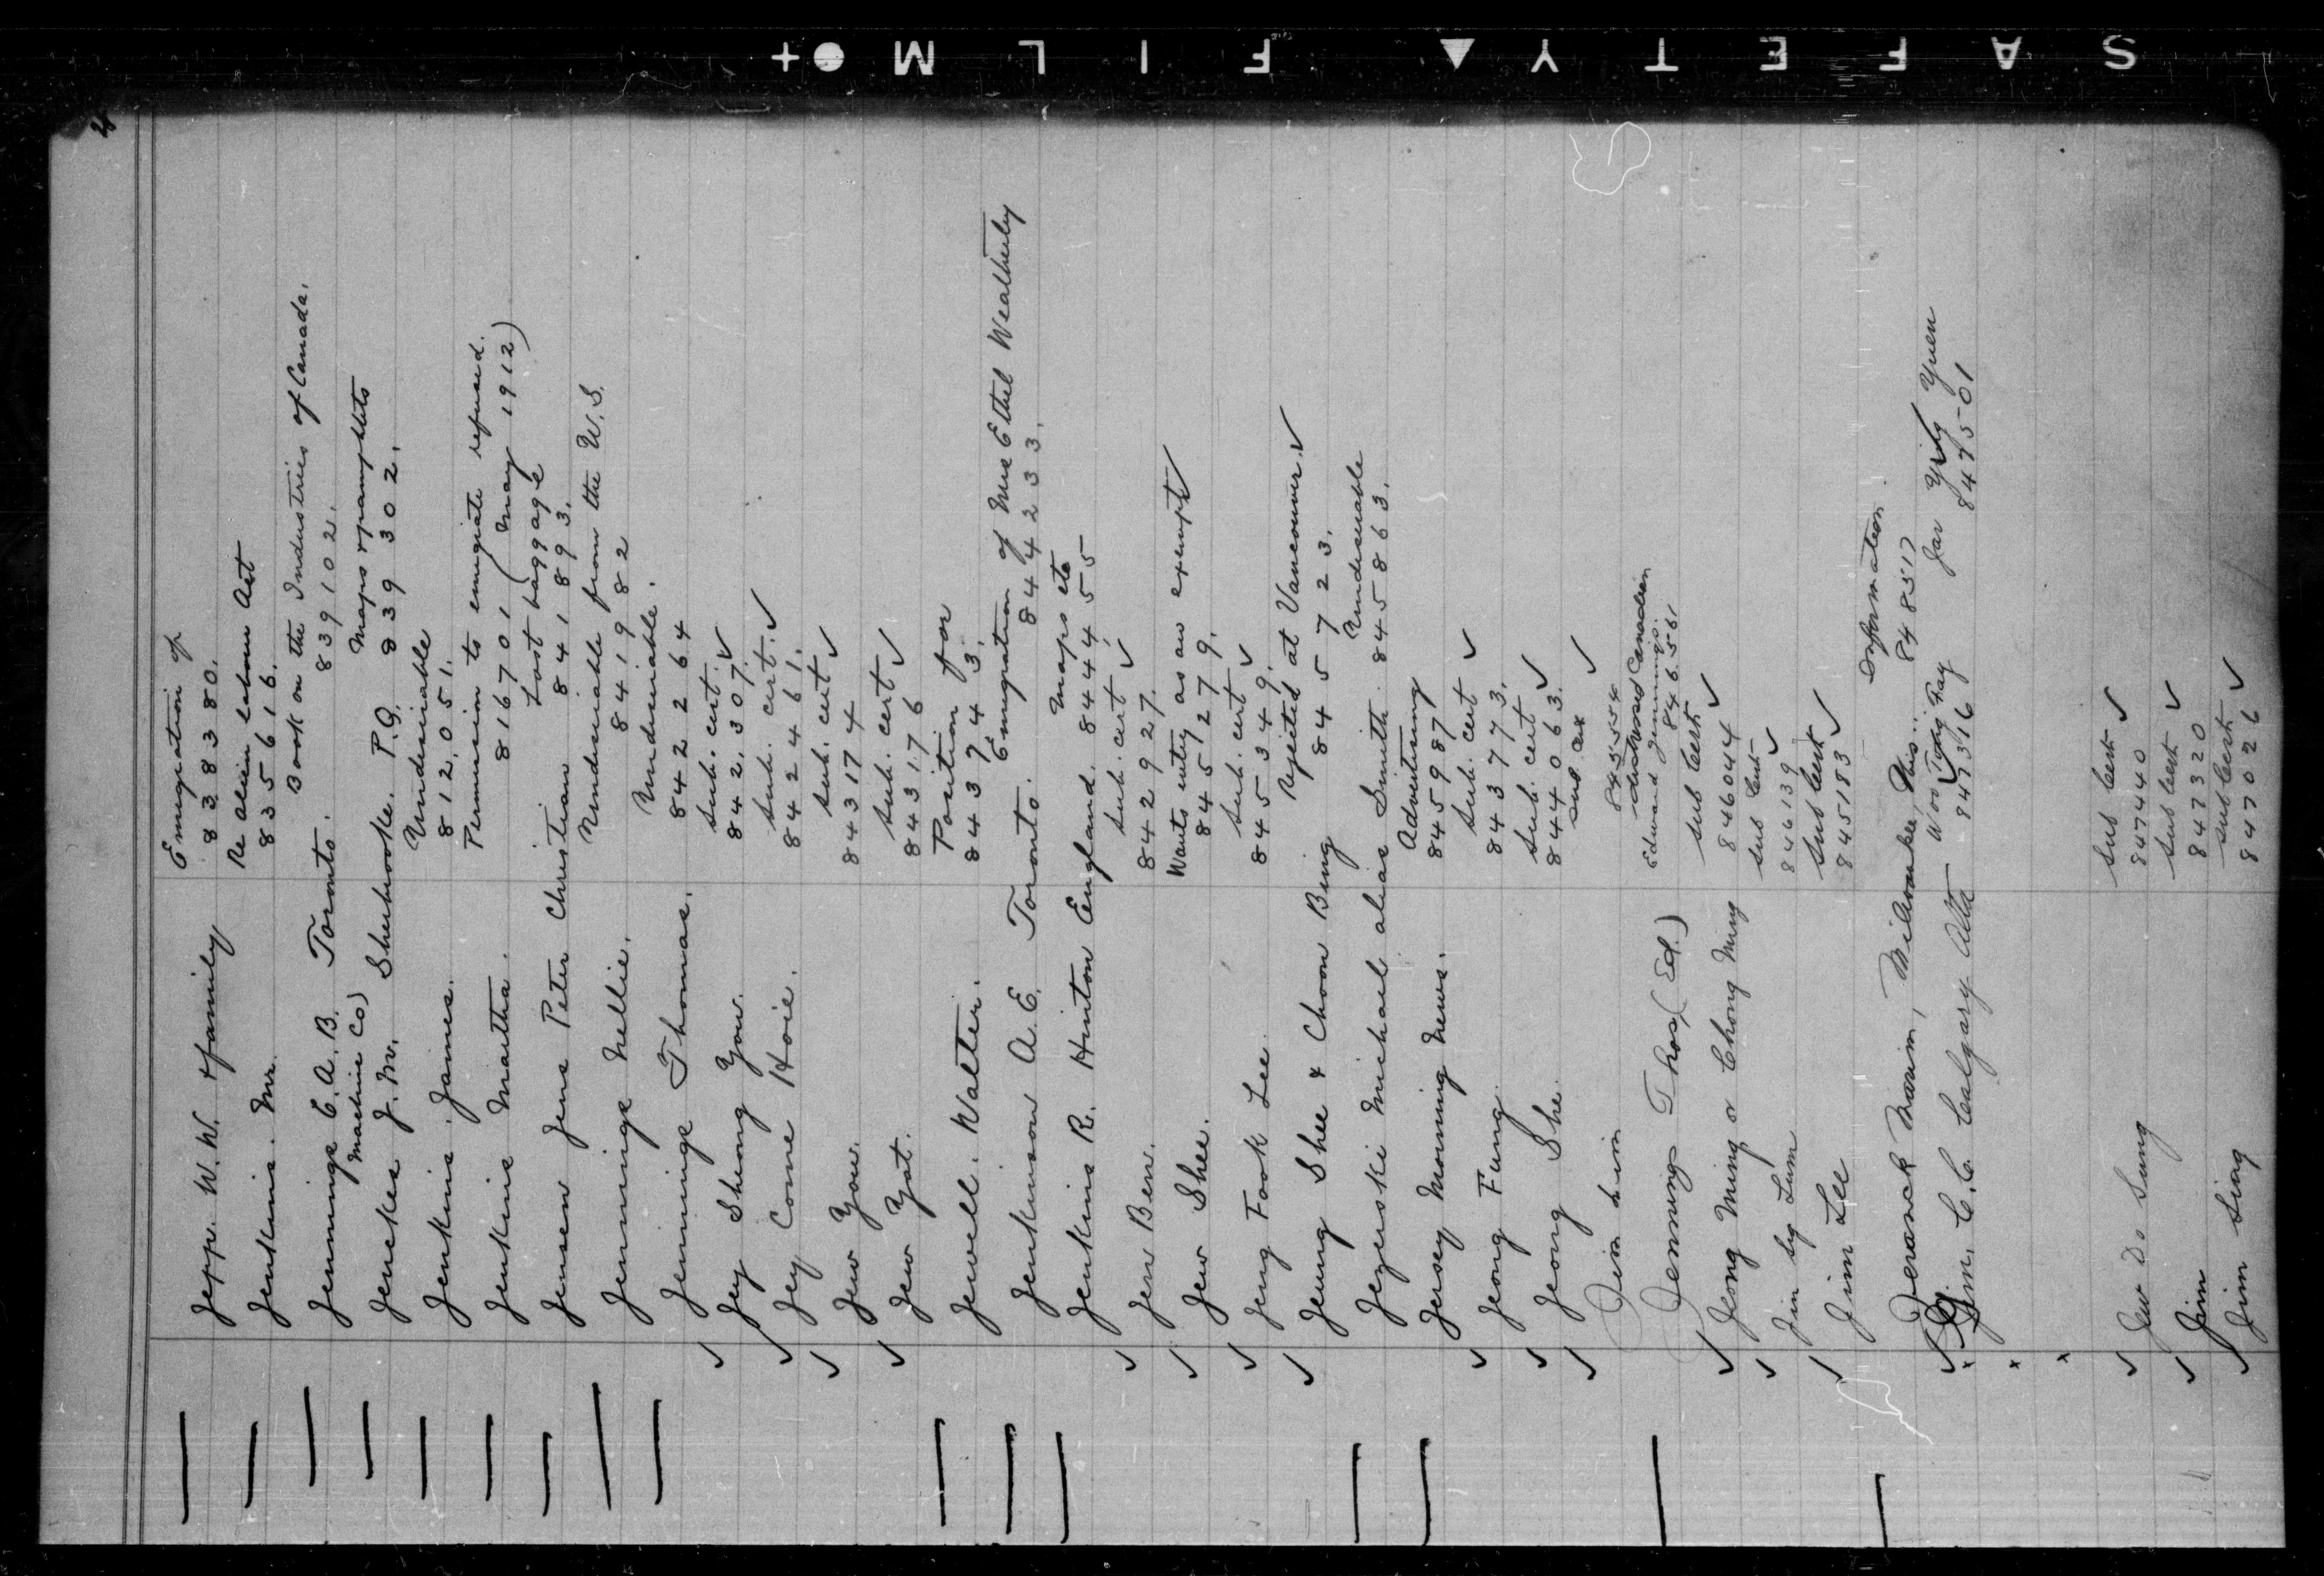 SAFETY FILM
Jepp. W. W. & family Emigration of
838380.
Jenkins. Mr. Re Alien Labour Act
835616.
Jennings C. A. B. Toronto. Book on the Industries of Canada.
Machine Co) 839102.
Jenckes J. M. Sherbrooke. P.Q. Maps & pamphlets
839302.
Jenkins. James. Undesirable
812051.
Jenkins Martha. Permission to emigrate refused.
816701 (May 1912)
Jensen Jens Peter Christian Lost baggage
841893.
Jennings Nellie. Undesirable from the U.S.
841982
Jennings Thomas. Undesirable.
842264
Jey Sheong You. Sub. cert.
842307.
Jey Cone Hoie. Sub. cert.
842461.
Jew You. Sub. cert
843174
Jew Yat. Sub. cert
843176
Jewell. Walter. Position for
843743.
Jenkinson A. E. Toronto. Emigration of Mrs Ethel Weatherley
844233.
Jenkins R. Hinton England. Maps etc
844455
Jen Ben. Sub. cert
842927.
Jew Shee. Wants entry as an exempt
845279.
Jeng Fook Lee. Sub. cert
845349.
Jeung Shee & Choon Bing Rejected at Vancouver.
845723.
Jezerski Michael alias Smith. Undesirable
845863.
Jersey Morning News. Advertising
845987
Jeong Fung. Sub. cert
843773.
Jeong She. Sub. cert
844063.
Sub. Cert
845554
Jennings Thos (Ed.) distressed Canadian
Edward Jennings. 846561
Jeong Ming or Chong Ming Sub Cert
846044
Jim Sy Lum Sub Cert
846139
Jim Lee Sub Cert
845183
Milwaukee, Wis. Information
848517
Jim. C. C. Calgary Alta 847316
Jar Ying Yuen
847501
Jew Do Sung Sub Cert
847440
Jim Sub Cert
847320
Jim Sing Sub Cert
847026